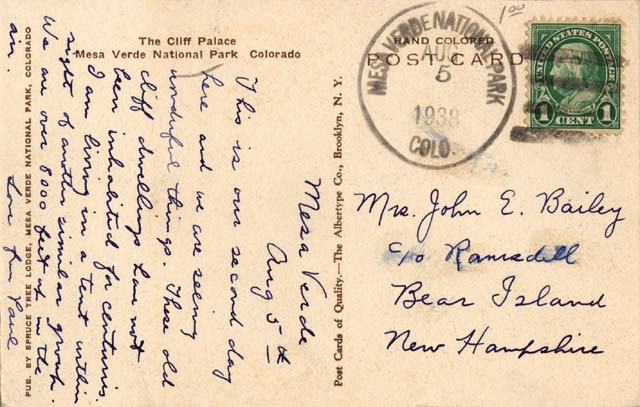 The Cliff Palace
Mesa Verde National Park Colorado
Mesa Verde
Aug 5th
This is our second day
here and we are seeing
wonderful things. These old
cliff dwellings have not
been inhabited for centuries.
I am living in a tent within
sight of another similar group.
We are over 8000 feet up in the
air.
Love from Paul
PUB. BY SPRUCE TREE LODGE, MESA VERDE NATIONAL PARK, COLORADO
Post Cards of Quality.—The Albertype Co., Brooklyn, N. Y.
HAND COLORED
POST CARD
1.00
MESA VERDE NATIONAL PARK
AUG
5
1938
COLO.
UNITED STATES POSTAGE
1 CENT 1
Mrs. John E. Bailey
c/o Ramsdell
Bear Island
New Hampshire